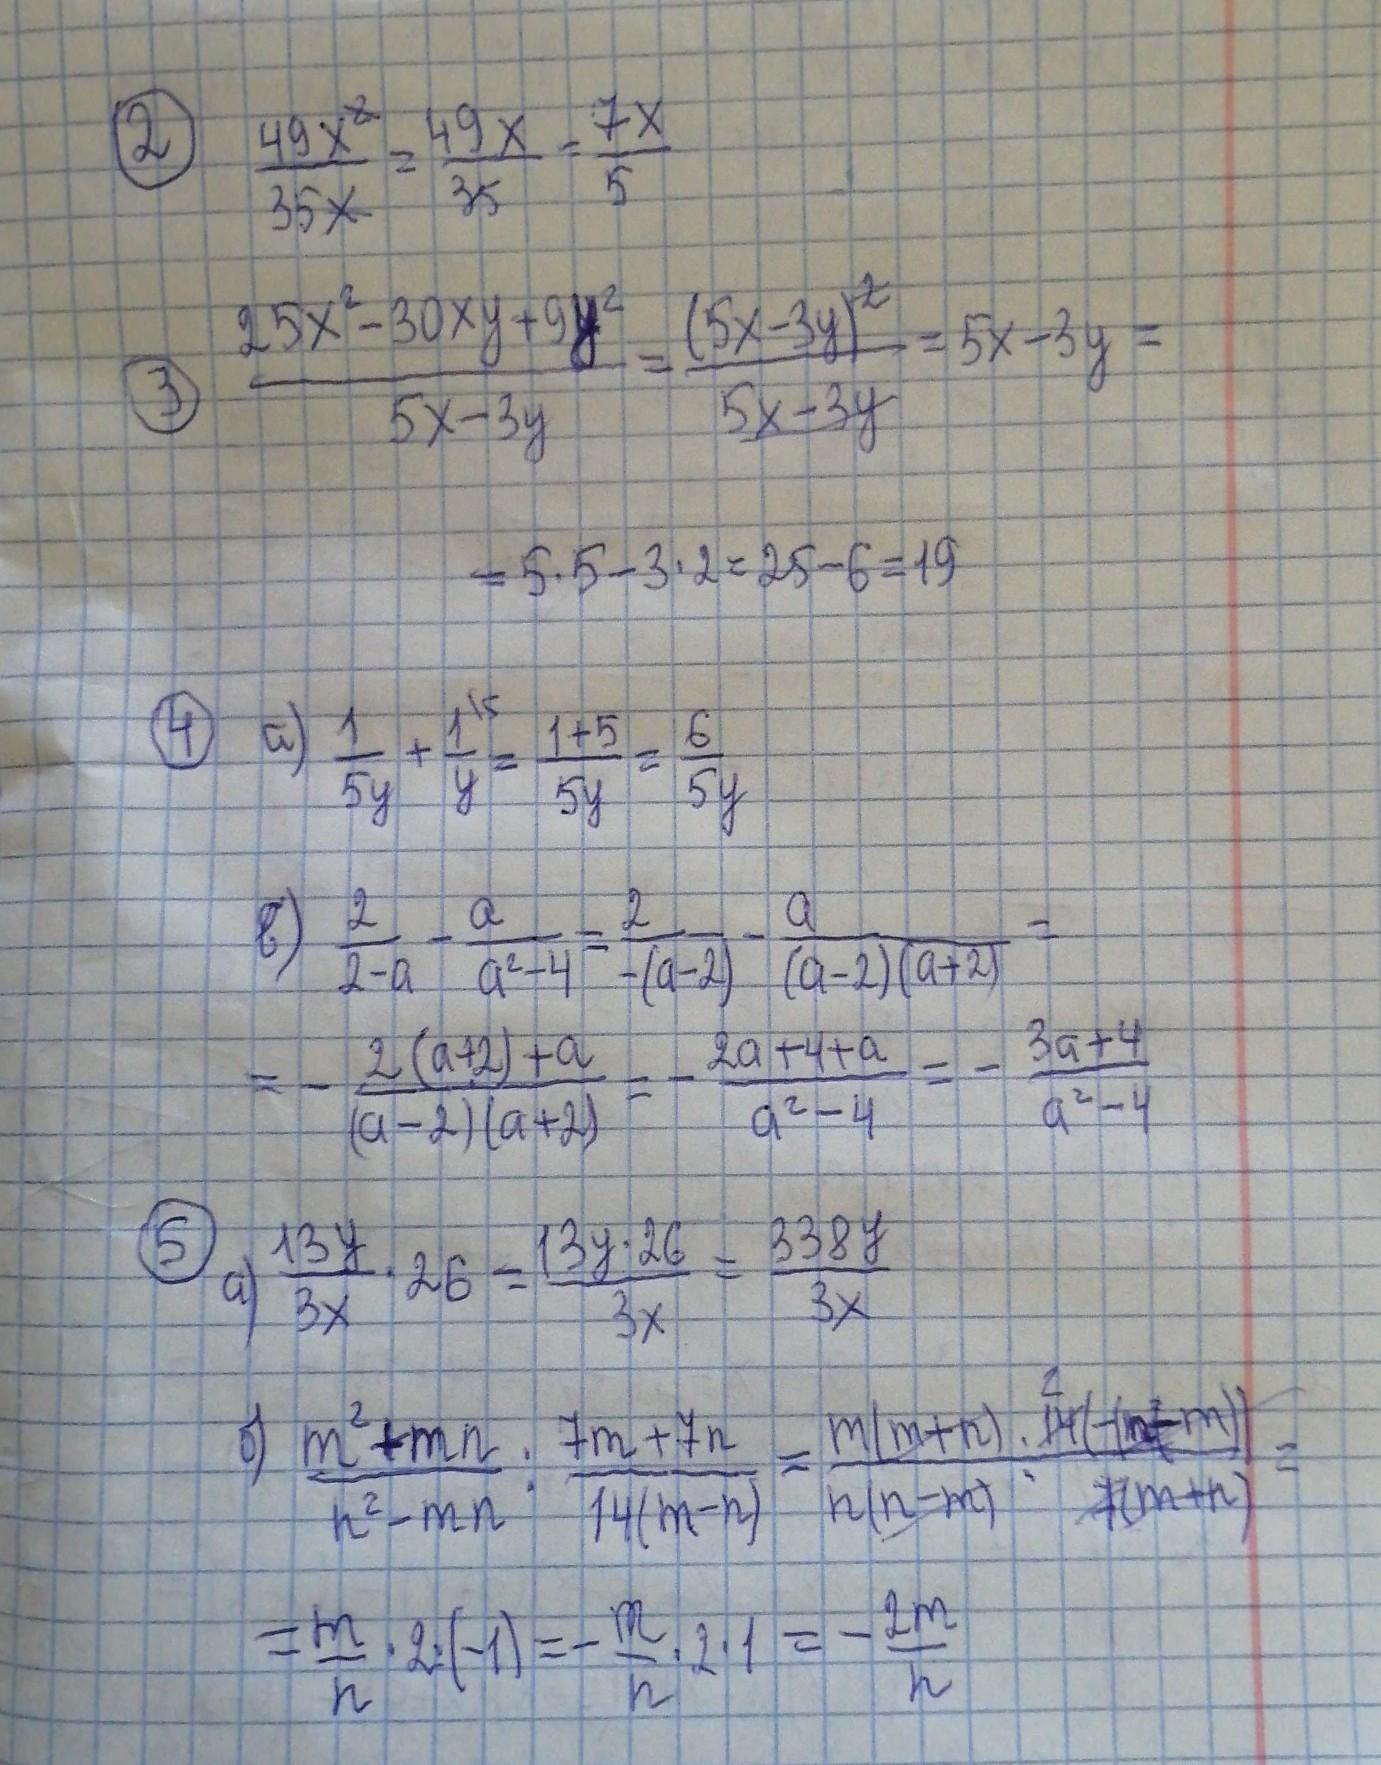 ② 49x²/35x = 49x/35 = 7x/5
③ (25x²-30xy+9y²)/(5x-3y) = (5x-3y)²/(5x-3y) = 5x-3y =
= 5·5-3·2 = 25-6 = 19
④ а) 1/5y + 1\5/y = (1+5)/5y = 6/5y
б) 2/(2-a) - a/(a²-4) = 2/(-(a-2)) - a/((a-2)(a+2)) =
= - (2(a+2)+a)/((a-2)(a+2)) = - (2a+4+a)/(a²-4) = - (3a+4)/(a²-4)
⑤ а) 13y/3x · 26 = 13y·26/3x = 338y/3x
б) (m²+mn)/(n²-mn) : (7m+7n)/(14(m-n)) = m(m+n)/n(n-m) · 2 14(-(n-m))/7(m+n) =
= m/n · 2·(-1) = - m/n · 2·1 = - 2m/n